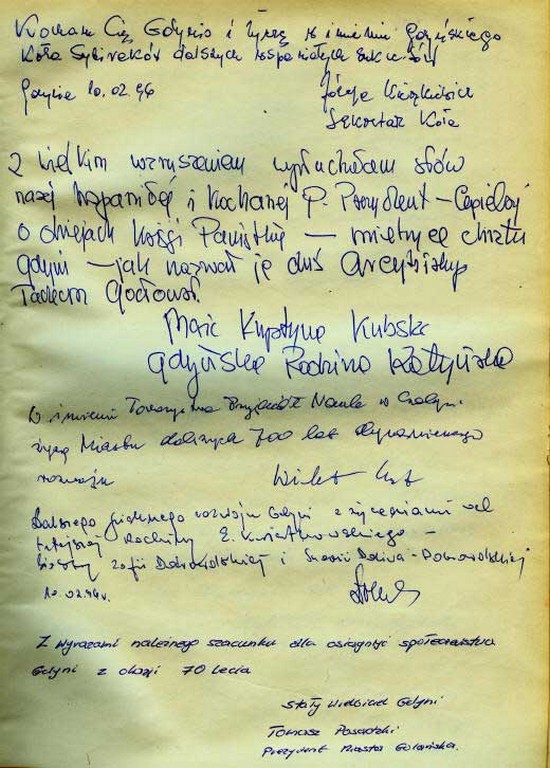 Kocham Cię Gdynio i życzę w imieniu Gdyńskiego
Koła Sybiraków dalszych wspaniałych sukcesów
Gdynia 10.02.96
Sekretarz Koła
Z wielkim wzruszeniem wysłuchałam słów
naszej wspaniałej i kochanej P. Prezydent – Cegielskiej
o dziejach Księgi Pamiątkowej – metryce chrztu
Gdyni – jak nazwał ją dziś Arcybiskup
Tadeusz Gocłowski.
Maria Krystyna Kubska
Gdyńska Rodzina Katyńska
W imieniu Towarzystwa Przyjaciół w
życzę Miastu dalszych 700 lat dynamicznego
rozwoju
Dalszego rozwoju Gdyni z życzeniami od
tutejszej Rodziny E. Kwiatkowskiego –
Zofii i
10.02.96r.
Z wyrazami należnego szacunku dla osiągnięć społeczeństwa
Gdyni z okazji 70 lecia
Stały Wielbiciel Gdyni
Tomasz Posadzki
Prezydent Miasta Gdańska.